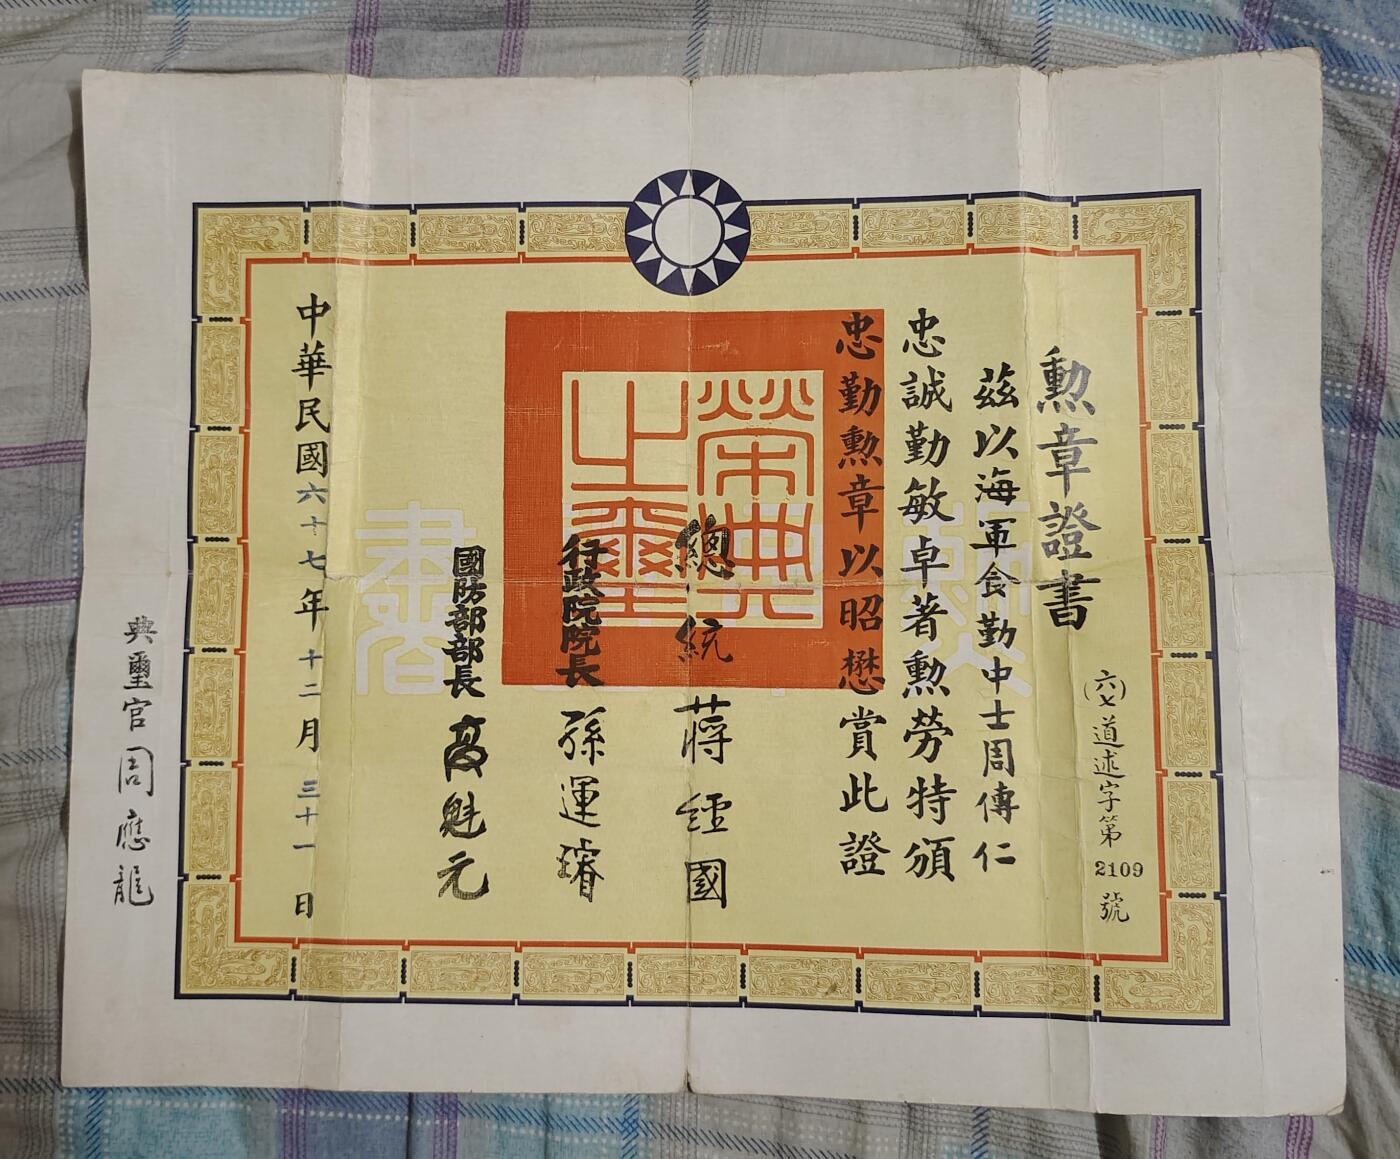 勲章證書
(六七)道述字第2109號
茲以海軍食勤中士周傳仁
忠誠勤敏卓著勲勞特頒
忠勤勲章以昭懋賞此證
總統 蔣經國
行政院院長 孫運璿
國防部部長 高魁元
中華民國六十七年十二月三十一日
典璽官 周應龍
榮典之璽